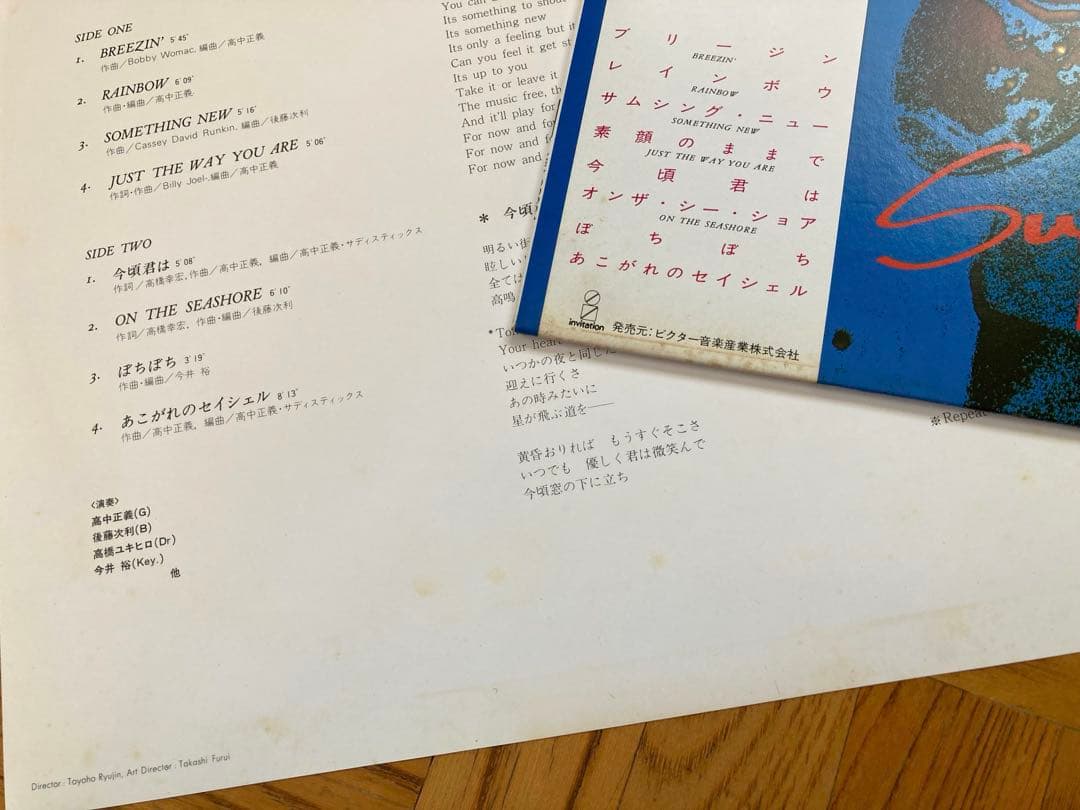 SIDE ONE
1. BREEZIN' 5′45″
作曲/Bobby Womac, 編曲/高中正義
2. RAINBOW 6′09″
作曲・編曲/高中正義
3. SOMETHING NEW 5′16″
作曲/Cassey David Runkin, 編曲/後藤次利
4. JUST THE WAY YOU ARE 5′06″
作詞・作曲/Billy Joel, 編曲/高中正義
SIDE TWO
1. 今頃君は 5′08″
作詞/高橋幸宏, 作曲/高中正義, 編曲/高中正義・サディスティックス
2. ON THE SEASHORE 6′10″
作詞/高橋幸宏, 作曲・編曲/後藤次利
3. ぽちぽち 3′19″
作曲・編曲/今井 裕
4. あこがれのセイシェル 8′13″
作曲/高中正義, 編曲/高中正義・サディスティックス
〈演奏〉
高中正義(G)
後藤次利(B)
高橋ユキヒロ(Dr)
今井 裕(Key.)
他
Director : Tayaho Ryujin, Art Director : Takashi Furui
You can
Its something to shout
Its something new
Its only a feeling but it
Can you feel it get st
Its up to you
Take it or leave it
The music free, th
And it'll play for
For now and fo
For now and f
For now and
* 今頃
明るい街
眩しい
全ては
高鳴
*To
Your hear
いつかの夜と同じ
迎えに行くさ
あの時みたいに
星が飛ぶ道を――
黄昏おりれば もうすぐそこさ
いつでも 優しく君は微笑んで
今頃窓の下に立ち
※Repeat
ブリージン
BREEZIN'
レインボウ
RAINBOW
サムシング・ニュー
SOMETHING NEW
素顔のままで
JUST THE WAY YOU ARE
今頃君は
オンザ・シー・ショア
ON THE SEASHORE
ぽちぽち
あこがれのセイシェル
invitation 発売元:ビクター音楽産業株式会社
Su